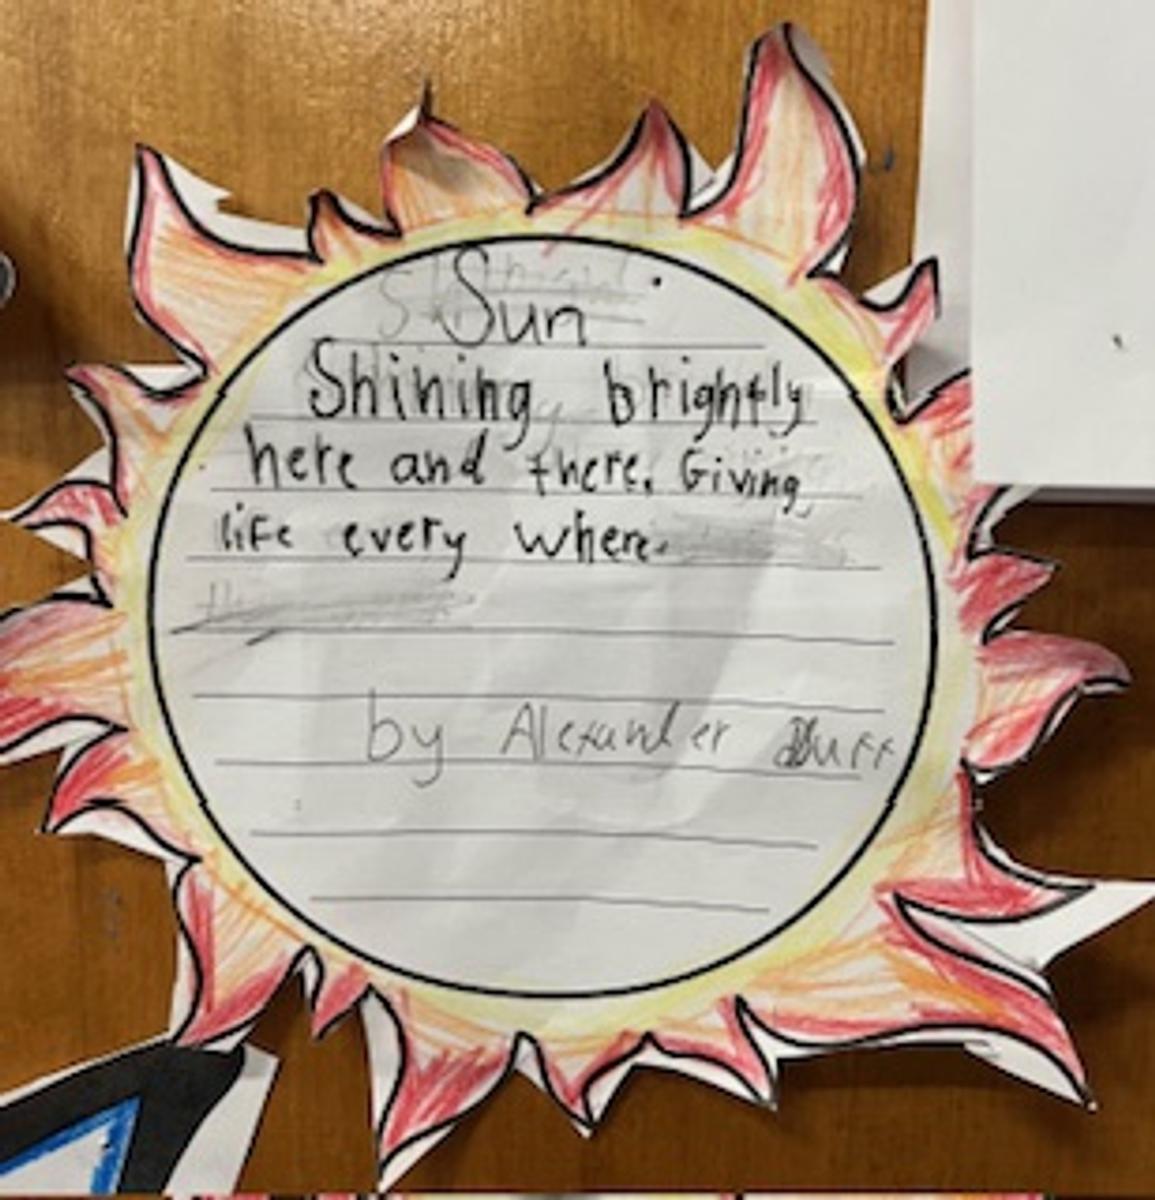 Sun
Shining brightly
here and there. Giving
life every where.
by Alexander Duff